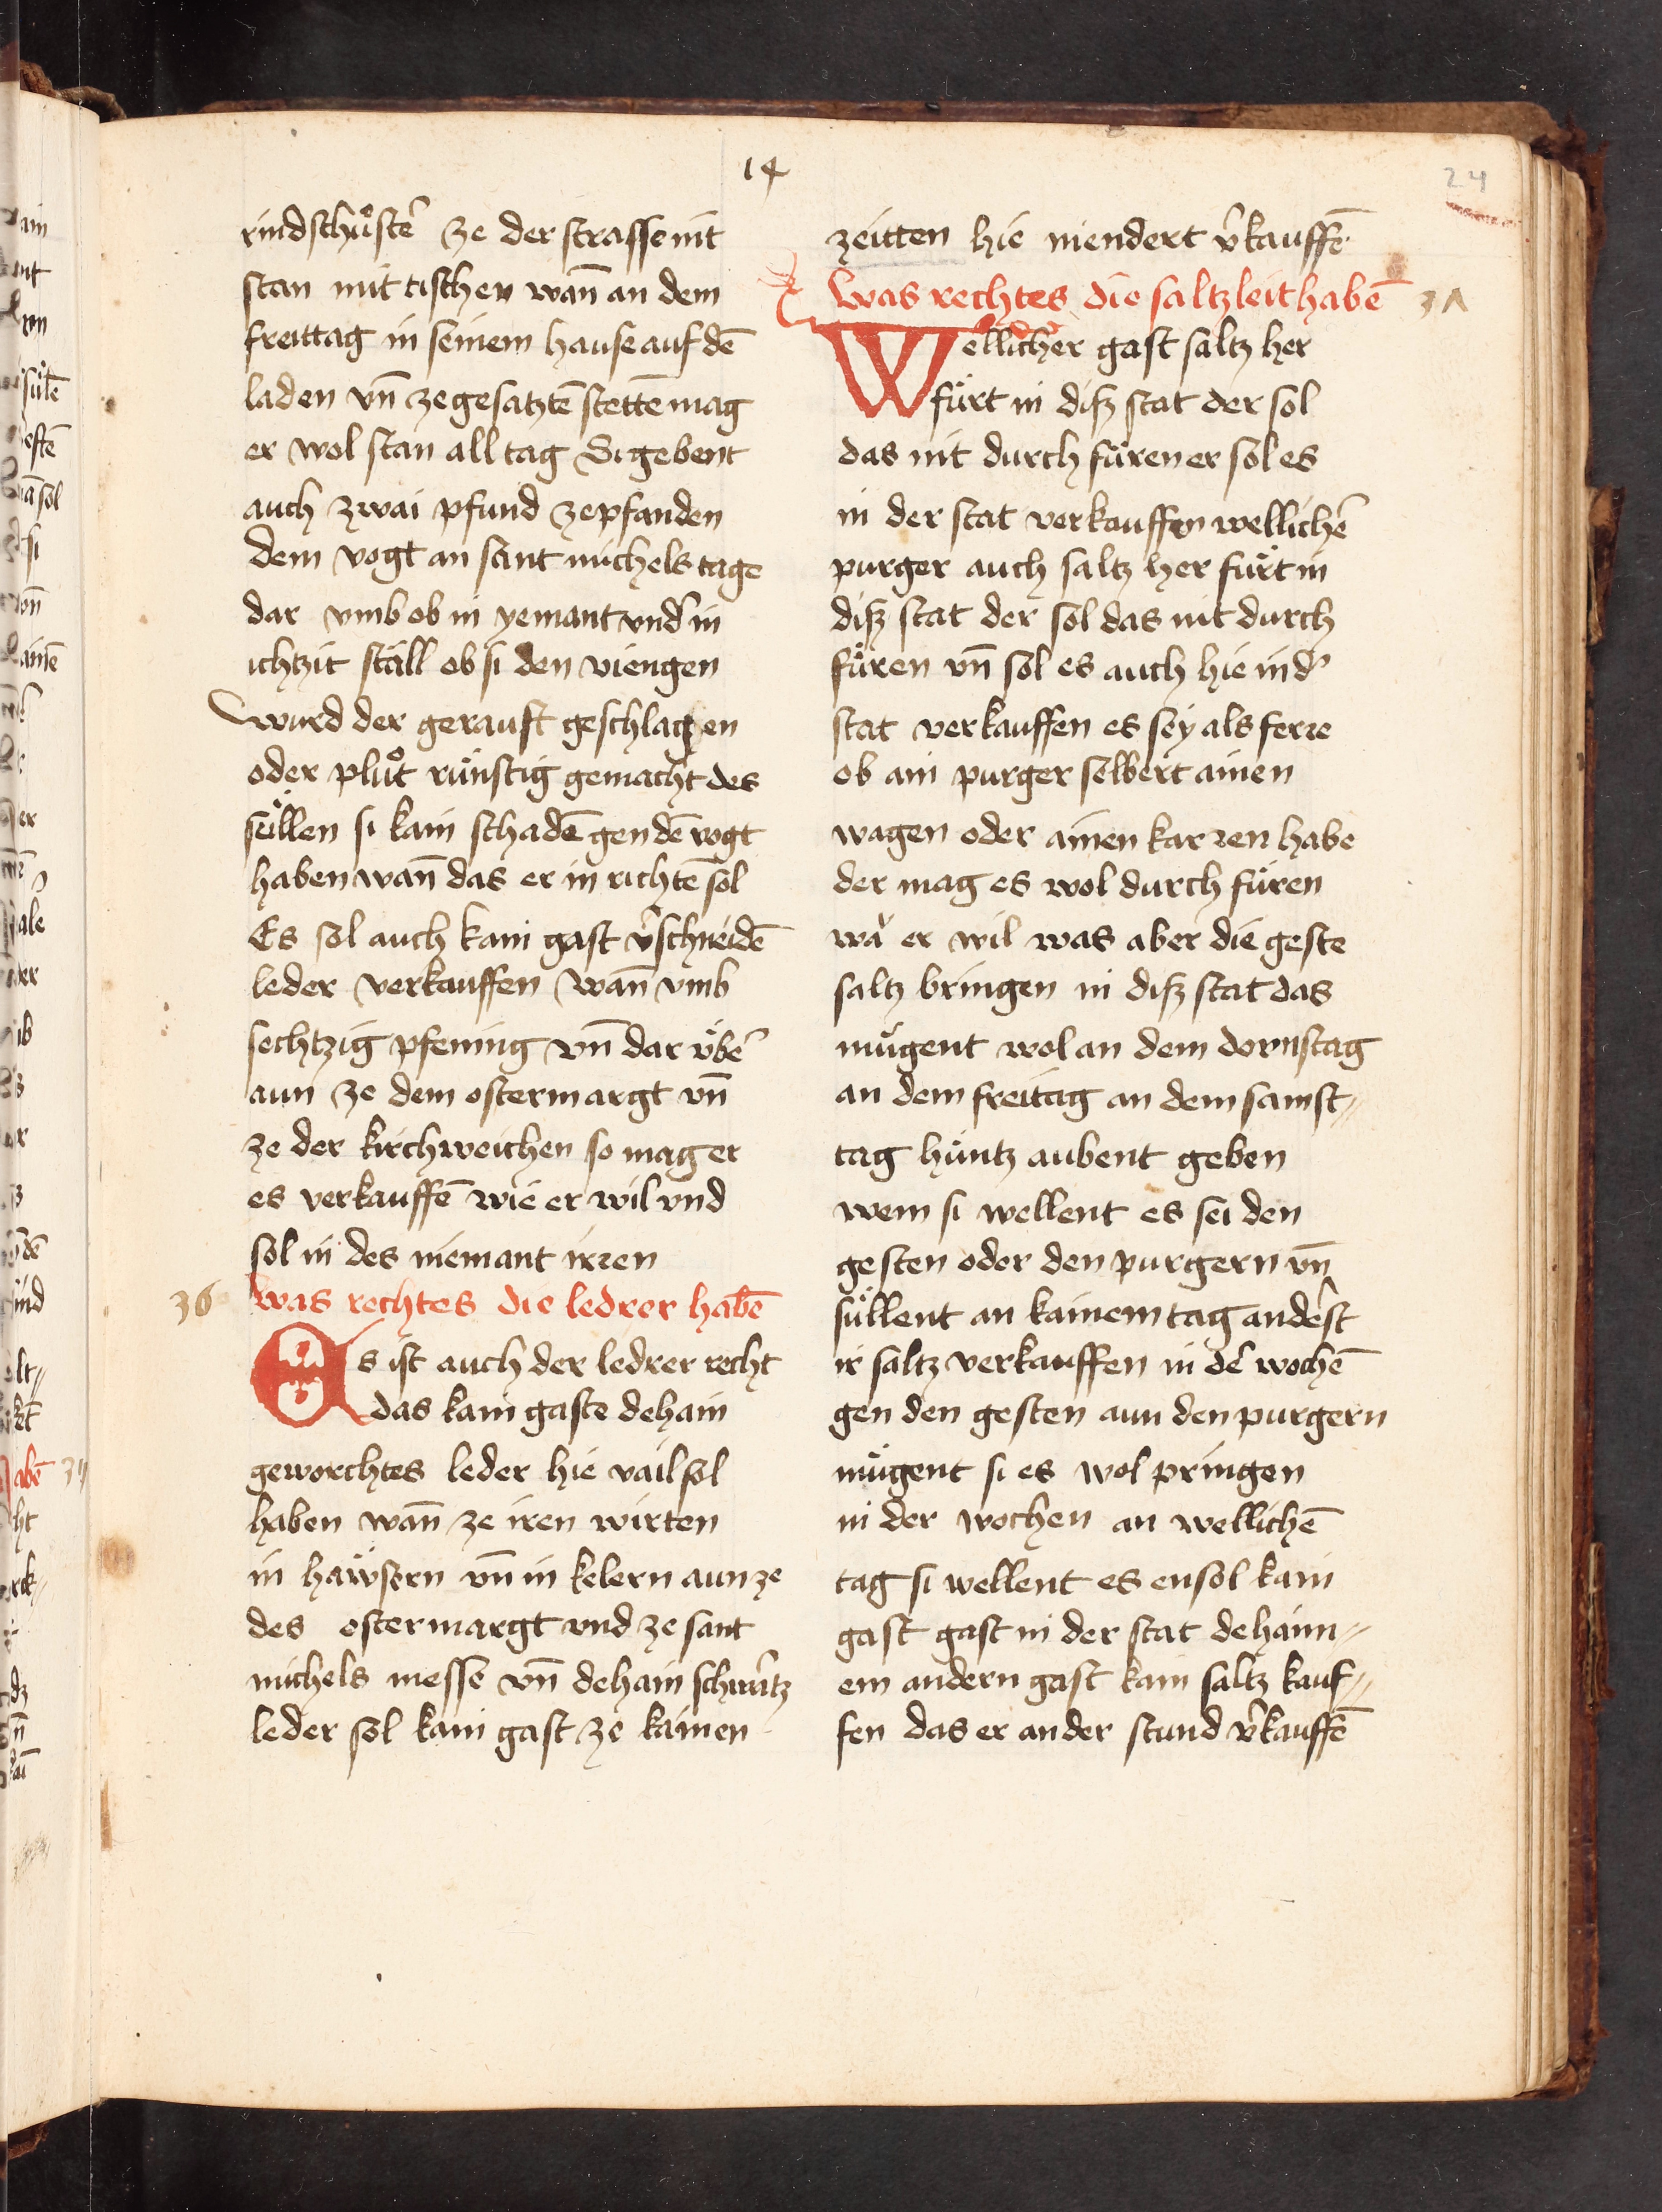 14
24
rindschůstē ze der strasse nit
stan mit tischen wan̄ an dem
freittag in seinem hause auf dē
laden vn̄ ze gesatztē stettē mag
er wol stan all tag Si gebent
auch zwai pfund ze pfanden
dem vogt an sant michels tage
dar vmb ob in yemant vnd̉ in
ichtzit ställ ob si den viengen
wurd der gerauft geschlagen
oder plůt rünstig gemacht des
süllen si kain schadē gen dē vogt
haben wan̄ das er in richtē sol
Es sol auch kain gast v̉schneidē
leder verkauffen wan̄ vmb
sechtzig pfening vn̄ dar vb̈ẻ
aun ze dem ostermargt vn̄
ze der kirchweichen so mag er
es verkauffē wie er wil vnd
sol in des niemant irren
36 was rechtes die ledrer habē
Es ist auch der ledrer recht
das kain gaste dehain
geworchtes leder hie vail sol
haben wan̄ ze iren wirten
in haẅsern vn̄ in kelern aun ze
des ostermargt vnd ze sant
michels messe vn̄ dehain schwa̍tz
leder sol kain gast ze kainen
zeitten hie niendert v̉kauffē
was rechtes die saltzleit habē 3Λ
Wellicher gast saltz her
fürt in disz stat der sol
das nit durch füren er sol es
in der stat verkauffen wellichē
purger auch saltz her fürt in
disz stat der sol das nit durch
füren vn̄ sol es auch hie in d̉
stat verkauffen es sey als ferre
ob ain purger selbert ainen
wagen oder ainen karren habe
der mag es wol durch füren
wa̍ er wil was aber die geste
saltz bringen in disz stat das
mügent wol an dem dornstag
an dem freitag an dem samst〃
tag hüntz aubent geben
wem si wellent es sei den
gesten oder den purgern vn̄
süllent an kainem tag ande̍st
ir saltz verkauffen in de̍ wochē
gen den gesten aun den purgern
mügent si es wol pringen
in der wochen an wellichē
tag si wellent es ensol kain
gast gast in der stat dehain〃
em andern gast kain saltz kauf〃
fen das er an der stund v̉kauffē